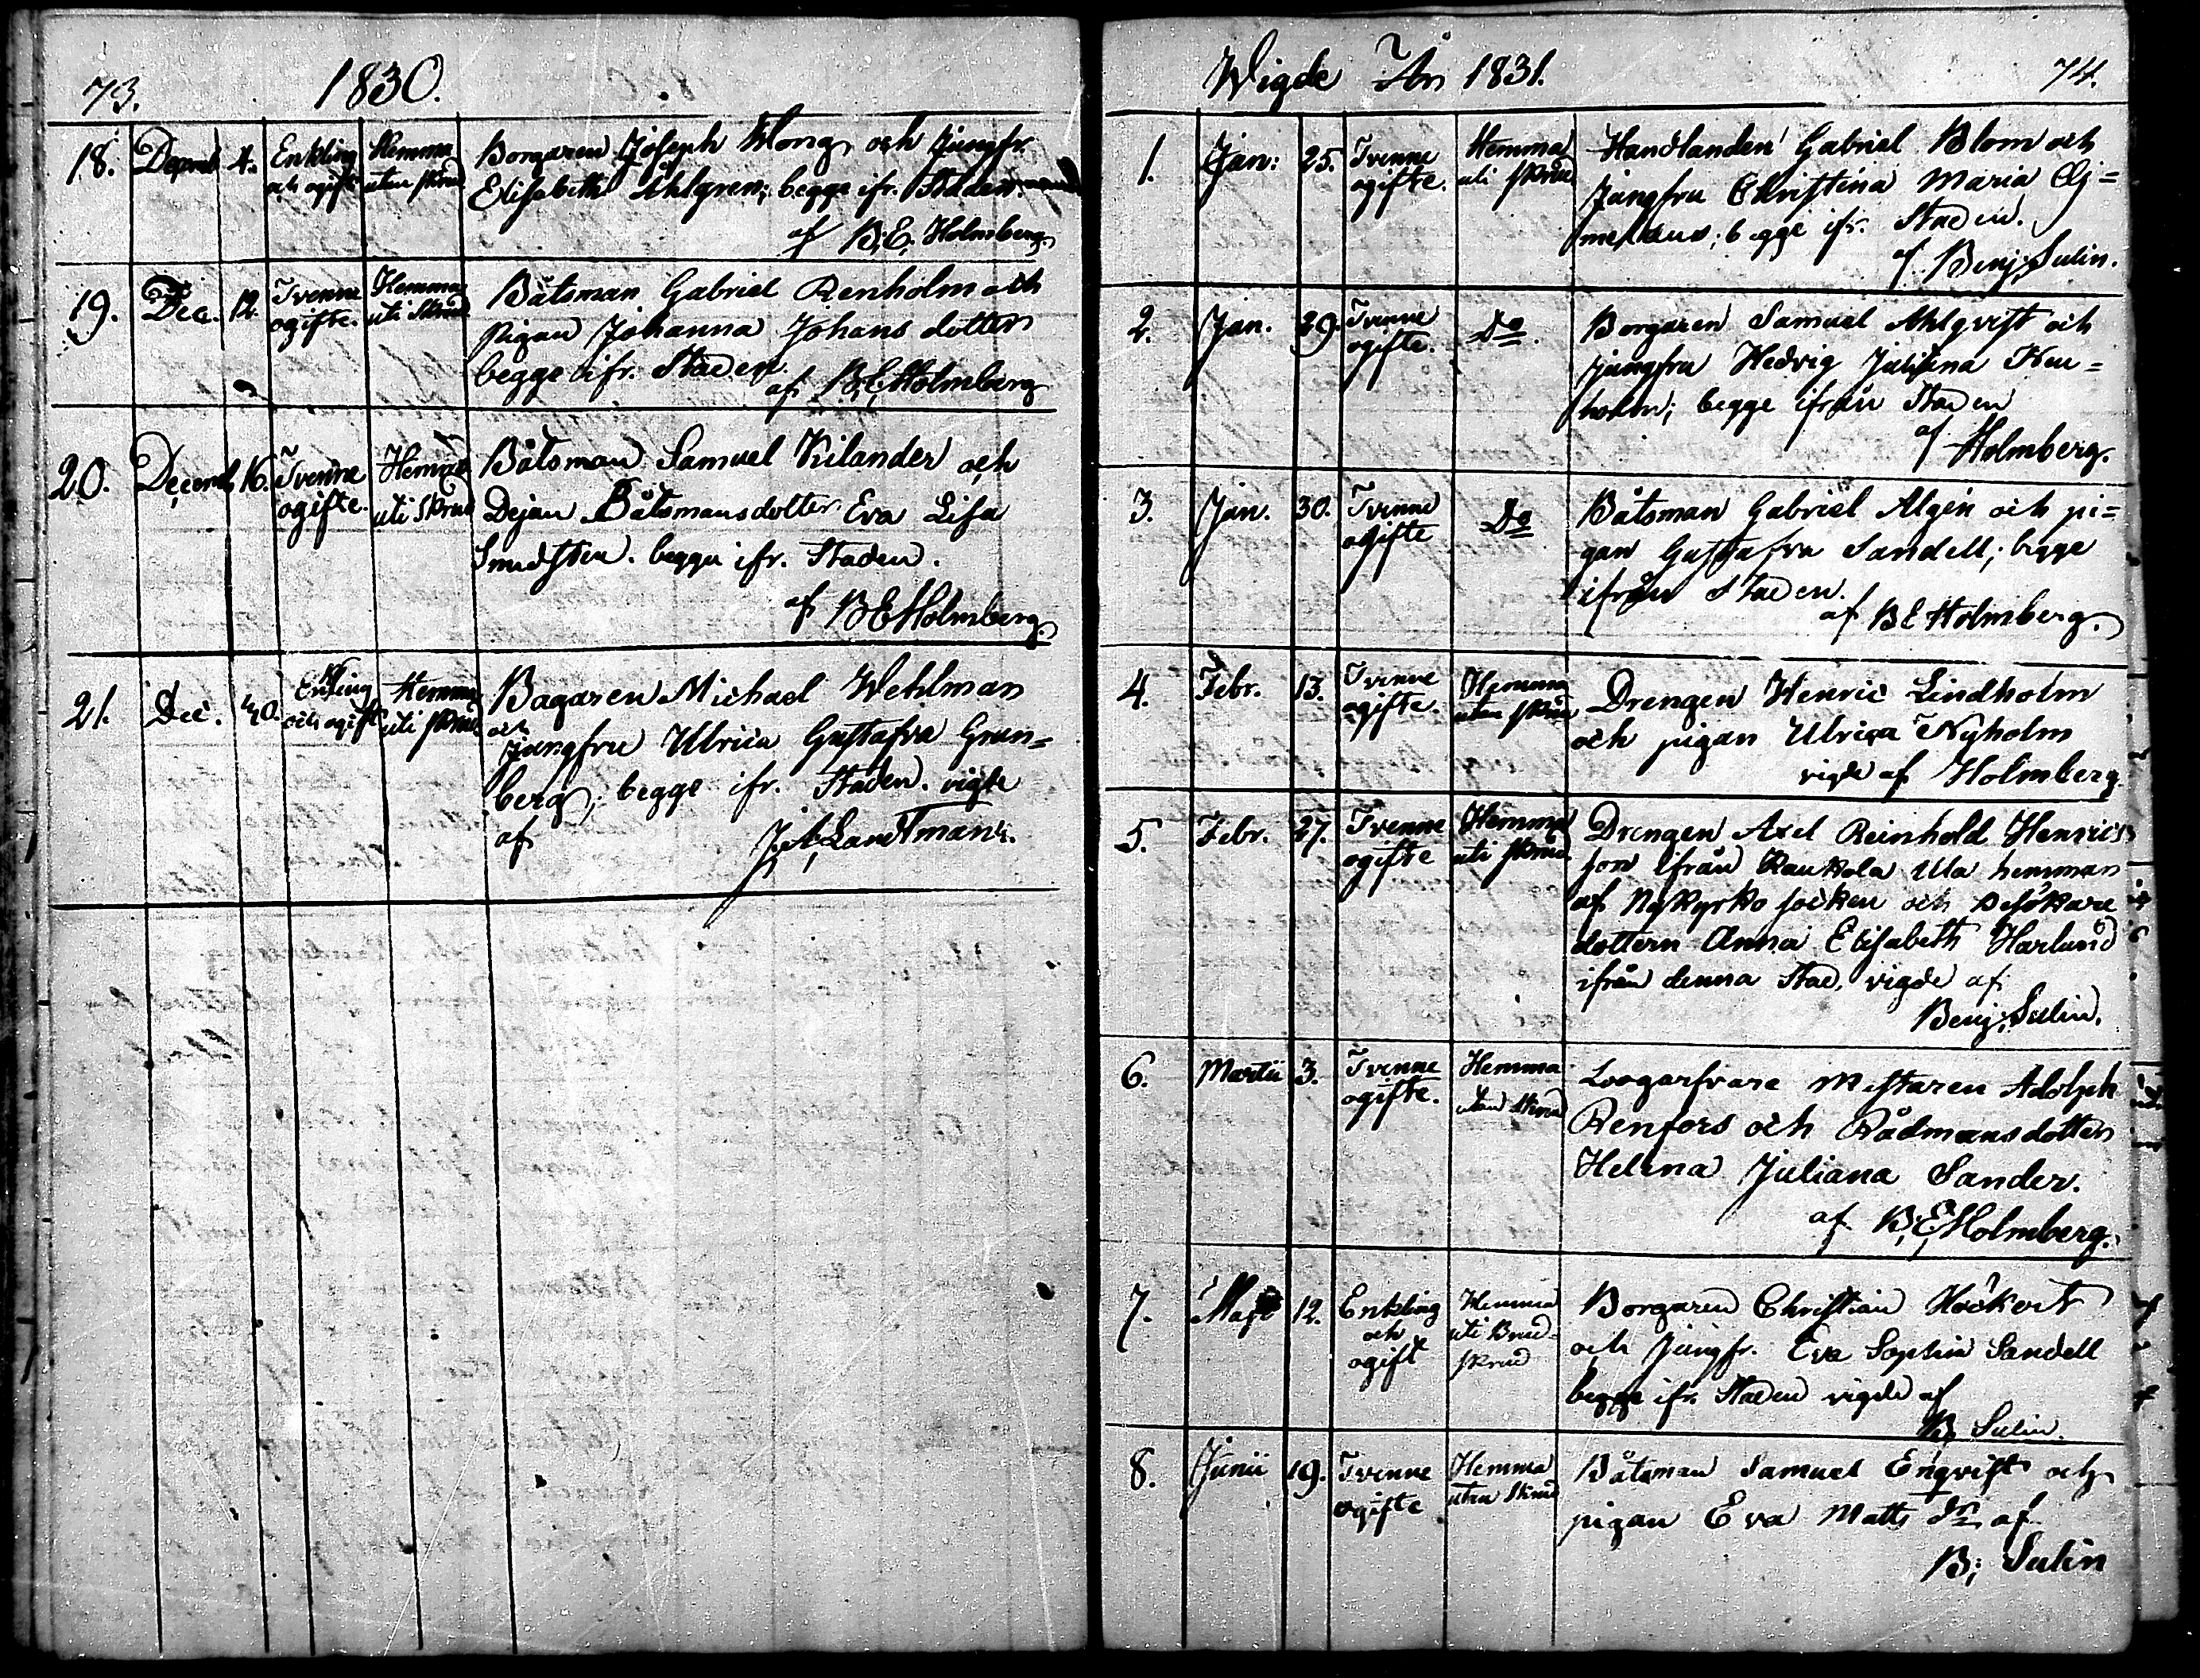 73.
1830.
18. Decemb 4. Enkling och ogift Hemma utan skrud Borgaren Joseph och Jungfr.
Elisabeth Ahlgren; begge ifr. Staden.
af B; E. Holmberg.
19. Dec. 12. Tvenne ogifte. Hemma uti Skrud Båtsman Gabriel Renholm och
Pigan Johanna Johans dotter
begge ifr. Staden.
af B. E. Holmberg
20. Decemb 16. Tvenne ogifte. Hemma uti Skrud Båtsman Samuel Kilander och
Dejan Båtsmansdotter Eva Lisa
begge ifr. Staden.
af B E Holmberg.
21. Dec. Enkling och ogift Hemma uti skrud Bagaren Michael Wehlman
och
jungfru Ulrica Gustafva Grun=
berg; begge ifr. Staden. vigde
af J. A. Landtman.
Wigde År 1831.
74.
1. Jan: 25. Tvenne ogifte. Hemma uti skrud Handlanden Gabriel Blom och
jungfru Christina Maria
begge ifr. Staden.
af Benj. Sulin.
2. Jan. 29. Tvenne ogifte. Do. Borgaren Samuel Ahlqvist och
jungfru Hedvig
begge ifrån Staden
af Holmberg.
3. Jan. 30. Tvenne ogifte Do Båtsman Gabriel Algen och pi=
gan Gustafva Sandell; begge
ifrån Staden.
af B E Holmberg.
4. Febr. 13. Tvenne ogifte. Hemma utan skrud Drengen Henric Lindholm
och pigan Ulrica Nyholm
vigde af Holmberg
5. Febr. 27. Tvenne ogifte Hemma uti skrud Drengen Axel Reinhold Henrics
son ifrån Raukola Ula hemman
af Nykyrko socken och Besökare
dottern Anna Elisabeth Harlund
ifrån denna Stad, vigde af
Benj. Sulin.
6. Martii 3. Tvenne ogifte. Hemma utan Skrud Loogarfvare Mestaren Adolph
Renfors och Rådmansdotter
Helena Juliana Sander.
af B; E Holmberg.
7. Maji 12. Enkling och ogift Hemma uti Brud= skrud Borgaren Christian Höckert
och jungfr. Eva Sophia Sandell
begge ifr. Staden vigde af
B. Sulin.
8. Junii 19. Tvenne ogifte Hemma utan Skrud Båtsman Samuel Enqvist och
pigan Eva Matts dr. af
B; Sulin